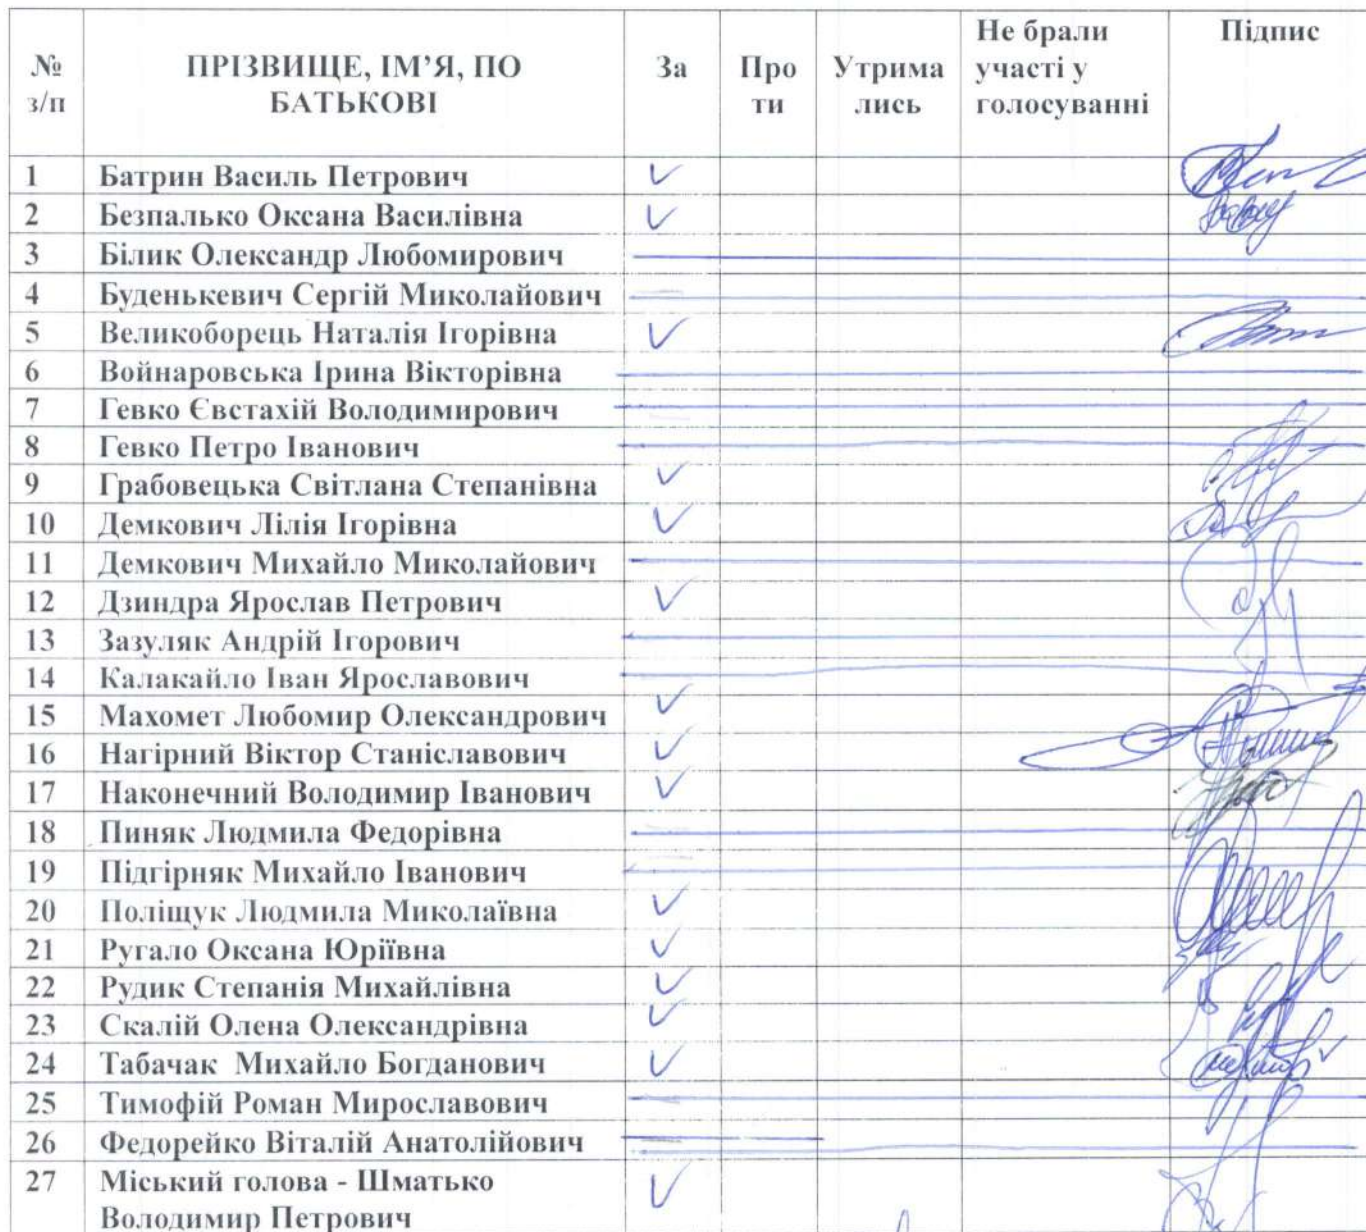 № з/п ПРІЗВИЩЕ, ІМ’Я, ПО БАТЬКОВІ За Про ти Утрима лись Не брали участі у голосуванні Підпис
1 Батрин Василь Петрович ✓
2 Безпалько Оксана Василівна ✓
3 Білик Олександр Любомирович
4 Буденькевич Сергій Миколайович
5 Великоборець Наталія Ігорівна ✓
6 Войнаровська Ірина Вікторівна
7 Гевко Євстахій Володимирович
8 Гевко Петро Іванович
9 Грабовецька Світлана Степанівна ✓
10 Демкович Лілія Ігорівна ✓
11 Демкович Михайло Миколайович
12 Дзиндра Ярослав Петрович ✓
13 Зазуляк Андрій Ігорович
14 Калакайло Іван Ярославович
15 Махомет Любомир Олександрович ✓
16 Нагірний Віктор Станіславович ✓
17 Наконечний Володимир Іванович ✓
18 Пиняк Людмила Федорівна
19 Підгірняк Михайло Іванович
20 Поліщук Людмила Миколаївна ✓
21 Ругало Оксана Юріївна ✓
22 Рудик Степанія Михайлівна ✓
23 Скалій Олена Олександрівна ✓
24 Табачак Михайло Богданович ✓
25 Тимофій Роман Мирославович
26 Федорейко Віталій Анатолійович
27 Міський голова - Шматько ✓
Володимир Петрович